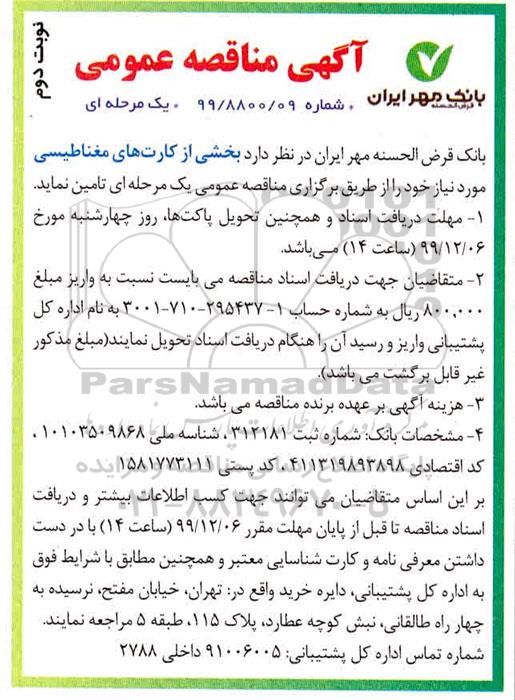 نوبت دوم
آگهی مناقصه عمومی
بانک مهر ایران
قرض الحسنه
* شماره ۹۹/۸۸۰۰/۰۹ * یک مرحله ای
بانک قرض الحسنه مهر ایران در نظر دارد بخشی از کارت‌های مغناطیسی
مورد نیاز خود را از طریق برگزاری مناقصه عمومی یک مرحله ای تامین نماید.
۱- مهلت دریافت اسناد و همچنین تحویل پاکت‌ها، روز چهارشنبه مورخ
۹۹/۱۲/۰۶ (ساعت ۱۴) می‌باشد.
۲- متقاضیان جهت دریافت اسناد مناقصه می بایست نسبت به واریز مبلغ
۸۰۰,۰۰۰ ریال به شماره حساب ۱-۲۹۵۴۳۷-۷۱۰-۳۰۰۱ به نام اداره کل
پشتیبانی واریز و رسید آن را هنگام دریافت اسناد تحویل نمایند(مبلغ مذکور
غیر قابل برگشت می باشد).
ParsNamadData
۳- هزینه آگهی بر عهده برنده مناقصه می باشد.
۴- مشخصات بانک: شماره ثبت ۳۱۲۱۸۱ ، شناسه ملی ۱۰۱۰۳۵۰۹۸۶۸ ،
کد اقتصادی ۴۱۱۳۱۹۸۹۳۸۹۸ ، کد پستی ۱۵۸۱۷۷۳۱۱۱
بر این اساس متقاضیان می توانند جهت کسب اطلاعات بیشتر و دریافت
اسناد مناقصه تا قبل از پایان مهلت مقرر ۹۹/۱۲/۰۶ (ساعت ۱۴) با در دست
داشتن معرفی نامه و کارت شناسایی معتبر و همچنین مطابق با شرایط فوق
به اداره کل پشتیبانی، دایره خرید واقع در: تهران، خیابان مفتح، نرسیده به
چهار راه طالقانی، نبش کوچه عطارد، پلاک ۱۱۵، طبقه ۵ مراجعه نمایند.
شماره تماس اداره کل پشتیبانی: ۹۱۰۰۶۰۰۵ داخلی ۲۷۸۸